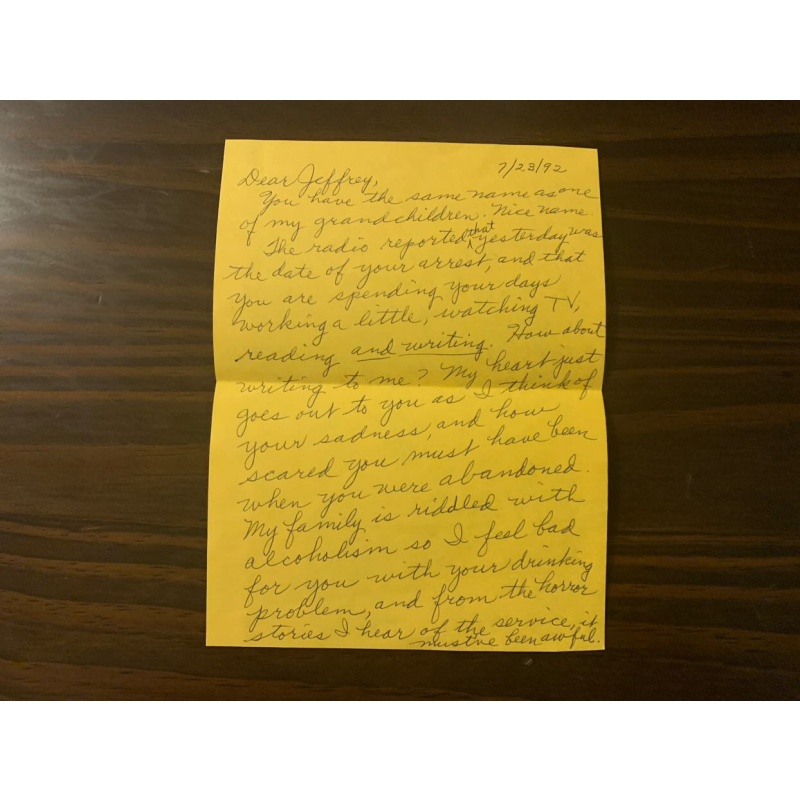 7/23/92
Dear Jeffrey,
You have the same name as one
of my grandchildren. Nice name.
The radio reported that yesterday was
the date of your arrest, and that
you are spending your days
working a little, watching TV,
reading and writing. How about
writing to me? My heart just
goes out to you as I think of
your sadness, and how
scared you must have been
when you were abandoned.
My family is riddled with
alcoholism so I feel bad
for you with your drinking
problem, and from the horror
stories I hear of the service, it
must've been awful.